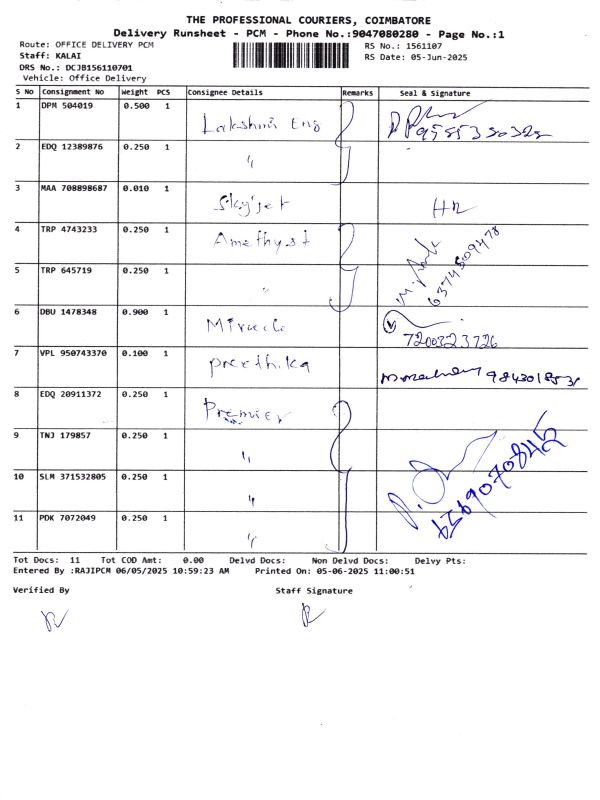 THE PROFESSIONAL COURIERS, COIMBATORE
Delivery Runsheet - PCM - Phone No.:9047080280 - Page No.:1
Route: OFFICE DELIVERY PCM RS No.: 1561107
Staff: KALAI RS Date: 05-Jun-2025
DRS No.: DCJB156110701
Vehicle: Office Delivery
S No Consignment No Weight PCS Consignee Details Remarks Seal & Signature
1 DPM 504019 0.500 1 Lakshmi Eng
2 EDQ 12389876 0.250 1 "
3 MAA 708898687 0.010 1 Skyjet
4 TRP 4743233 0.250 1 Amethyst
5 TRP 645719 0.250 1 " 6374509478
6 DBU 1478348 0.900 1 7200323726
7 VPL 950743370 0.100 1 preethika
8 EDQ 20911372 0.250 1 Premier
9 TNJ 179857 0.250 1 "
10 SLM 371532805 0.250 1 "
11 PDK 7072049 0.250 1 "
Tot Docs: 11 Tot COD Amt: 0.00 Delvd Docs: Non Delvd Docs: Delvy Pts:
Entered By :RAJIPCM 06/05/2025 10:59:23 AM Printed On: 05-06-2025 11:00:51
Verified By Staff Signature